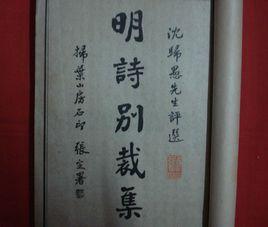 沈歸愚先生評選
明詩別裁集
掃葉山房石印 張定署